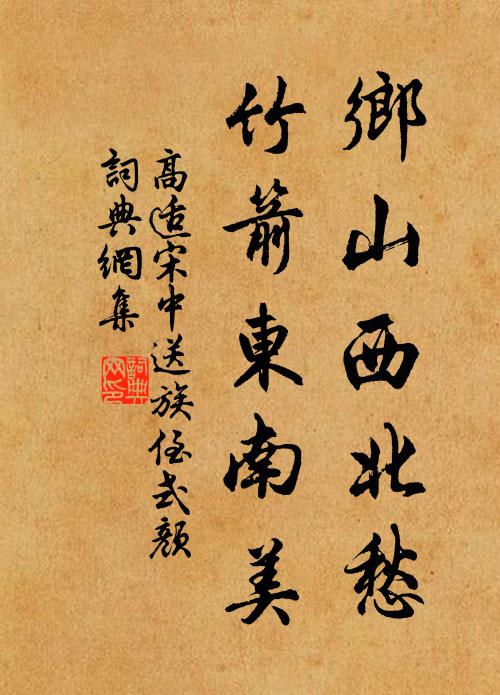 鄉山西北愁
竹箭東南美
高适宋中送族侄式顏
詞典網集
詞典
网印